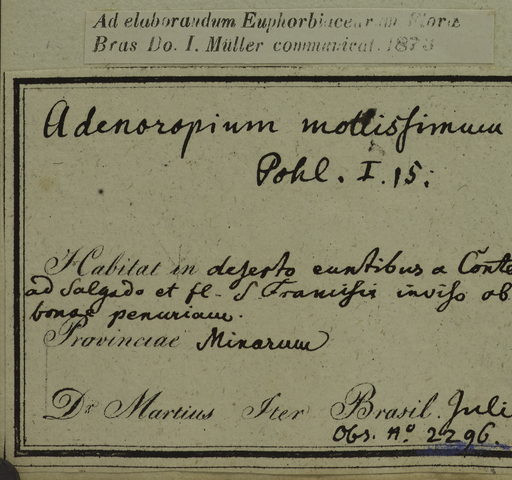 Ad elaborandum Euphorbiacearum Florae
Bras Do. I. Müller communicat. 1873
Adenoropium mollissimum
Pohl. I. 15.
Habitat in deserto euntibus a Conte
ad Salgado et fl. S Francisci inviso ob
bonae penuriam.
Provinciae Minarum
Dr Martius Iter Brasil. Juli
Obs. No. 2296.